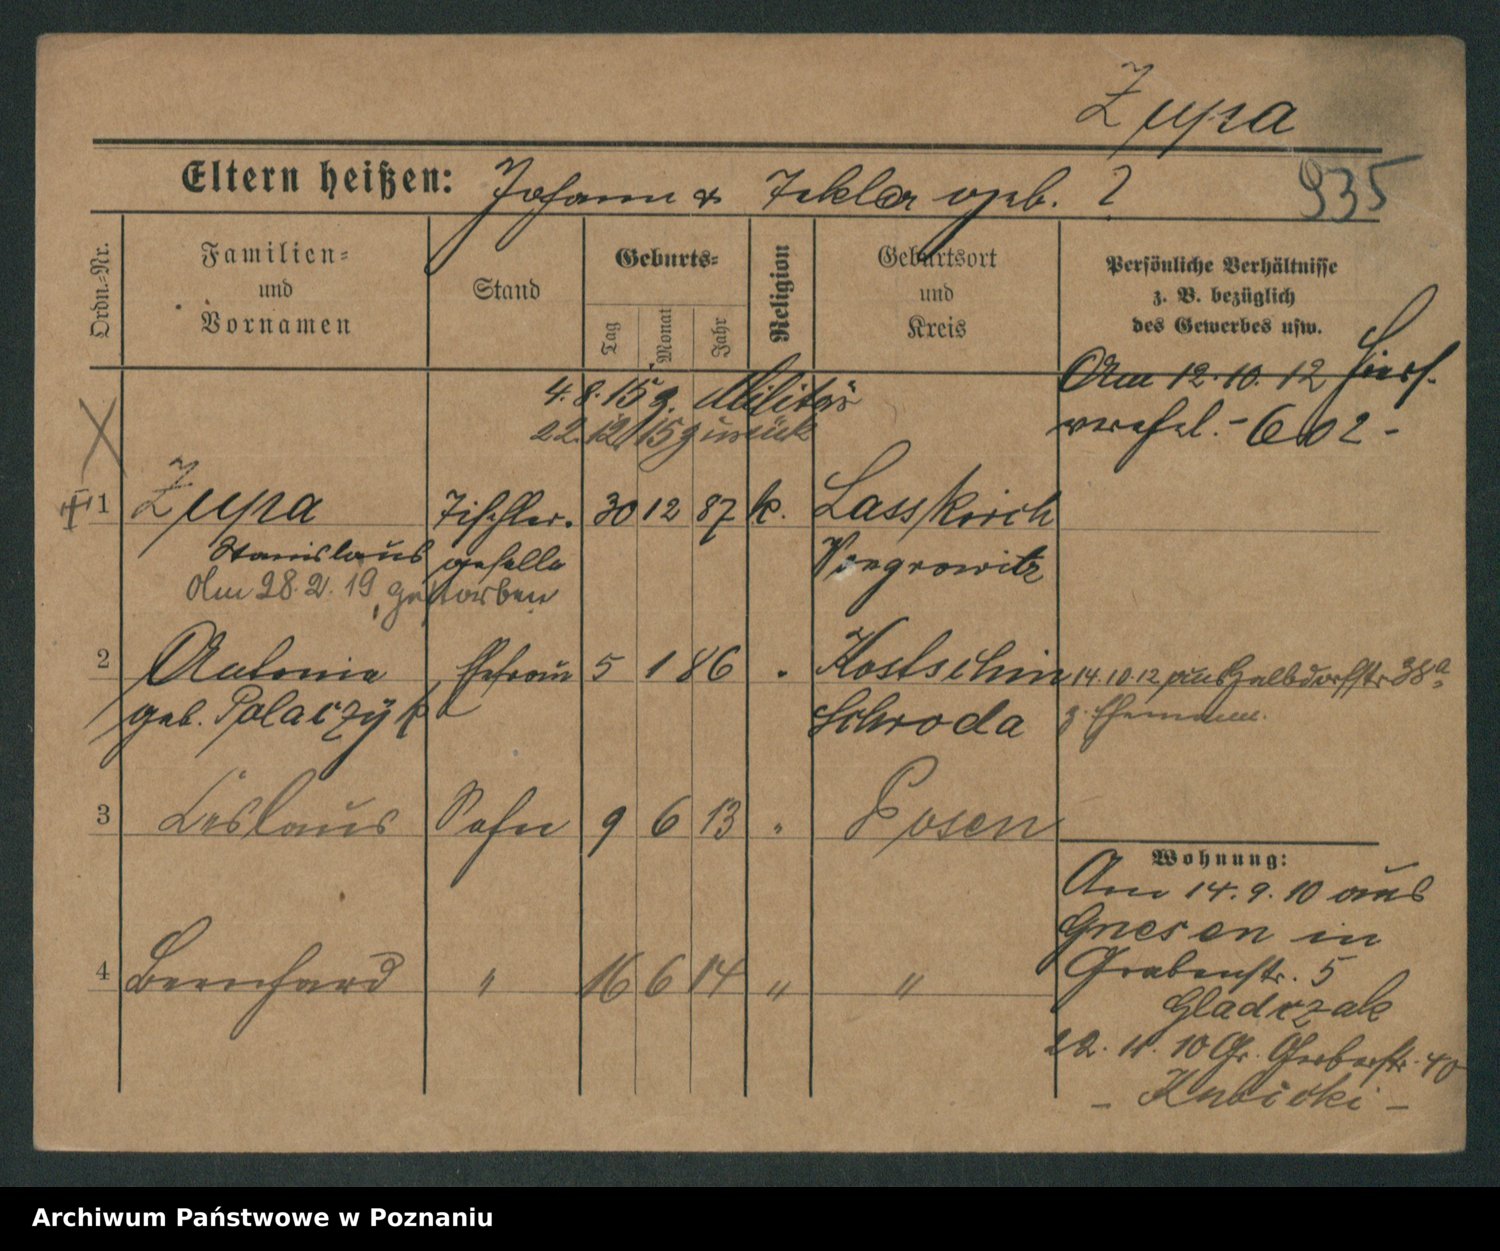 Zupa
Eltern heißen: Johann & Tekla geb. ?
935
Ordn.-Nr.
Familien- und Vornamen
Stand
Geburts-
Tag
Monat
Jahr
Religion
Geburtsort und Kreis
Persönliche Verhältnisse
z. B. bezüglich
des Gewerbes usw.
4.8.15 z. Militär
22.12.15 zurück
Am 12.10.12
- 602 -
1 Zupa Tischler- 30 12 87 k. Lasskirch
Stanislaus geselle Wongrowitz
Am 28.2.19 gestorben
2 Antonie Ehefrau 5 1 86 " Kostschin
geb. Polaczyk Schroda
14.10.12 aus Halbdorfstr 38a
z. Ehemann.
3 Leslaus Sohn 9 6 13 " Posen
4 Bernhard " 16 6 14 " "
Wohnung:
Am 14.9.10 aus
Gnesen in
Grabenstr. 5
Gladczak
22.11.10 Gr. Gerberstr. 40
- Kubicki -
Archiwum Państwowe w Poznaniu